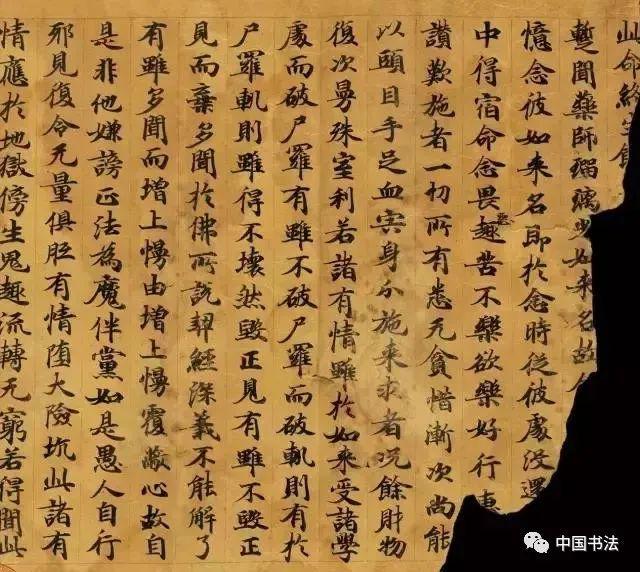 此命終生
暫聞藥師瑠璃光如來名故
憶念彼如來名即於念時從彼處没還
中得宿命念畏惡趣苦不樂欲樂好行惠
讚歎施者一切所有悉无貪惜漸次尚能
以頭目手足血宍身分施來求者況餘財物
復次曼殊室利若諸有情雖於如來受諸學
處而破尸羅有雖不破尸羅而破軌則有於
尸羅軌則雖得不壞然毀正見有雖不毀正
見而棄多聞於佛所說契經深義不能解了
有雖多聞而增上慢由增上慢覆蔽心故自
是非他嫌謗正法為魔伴黨如是愚人自行
邪見復令无量俱胝有情墮大險坑此諸有
情應於地獄傍生鬼趣流轉无窮若得聞此
中国书法